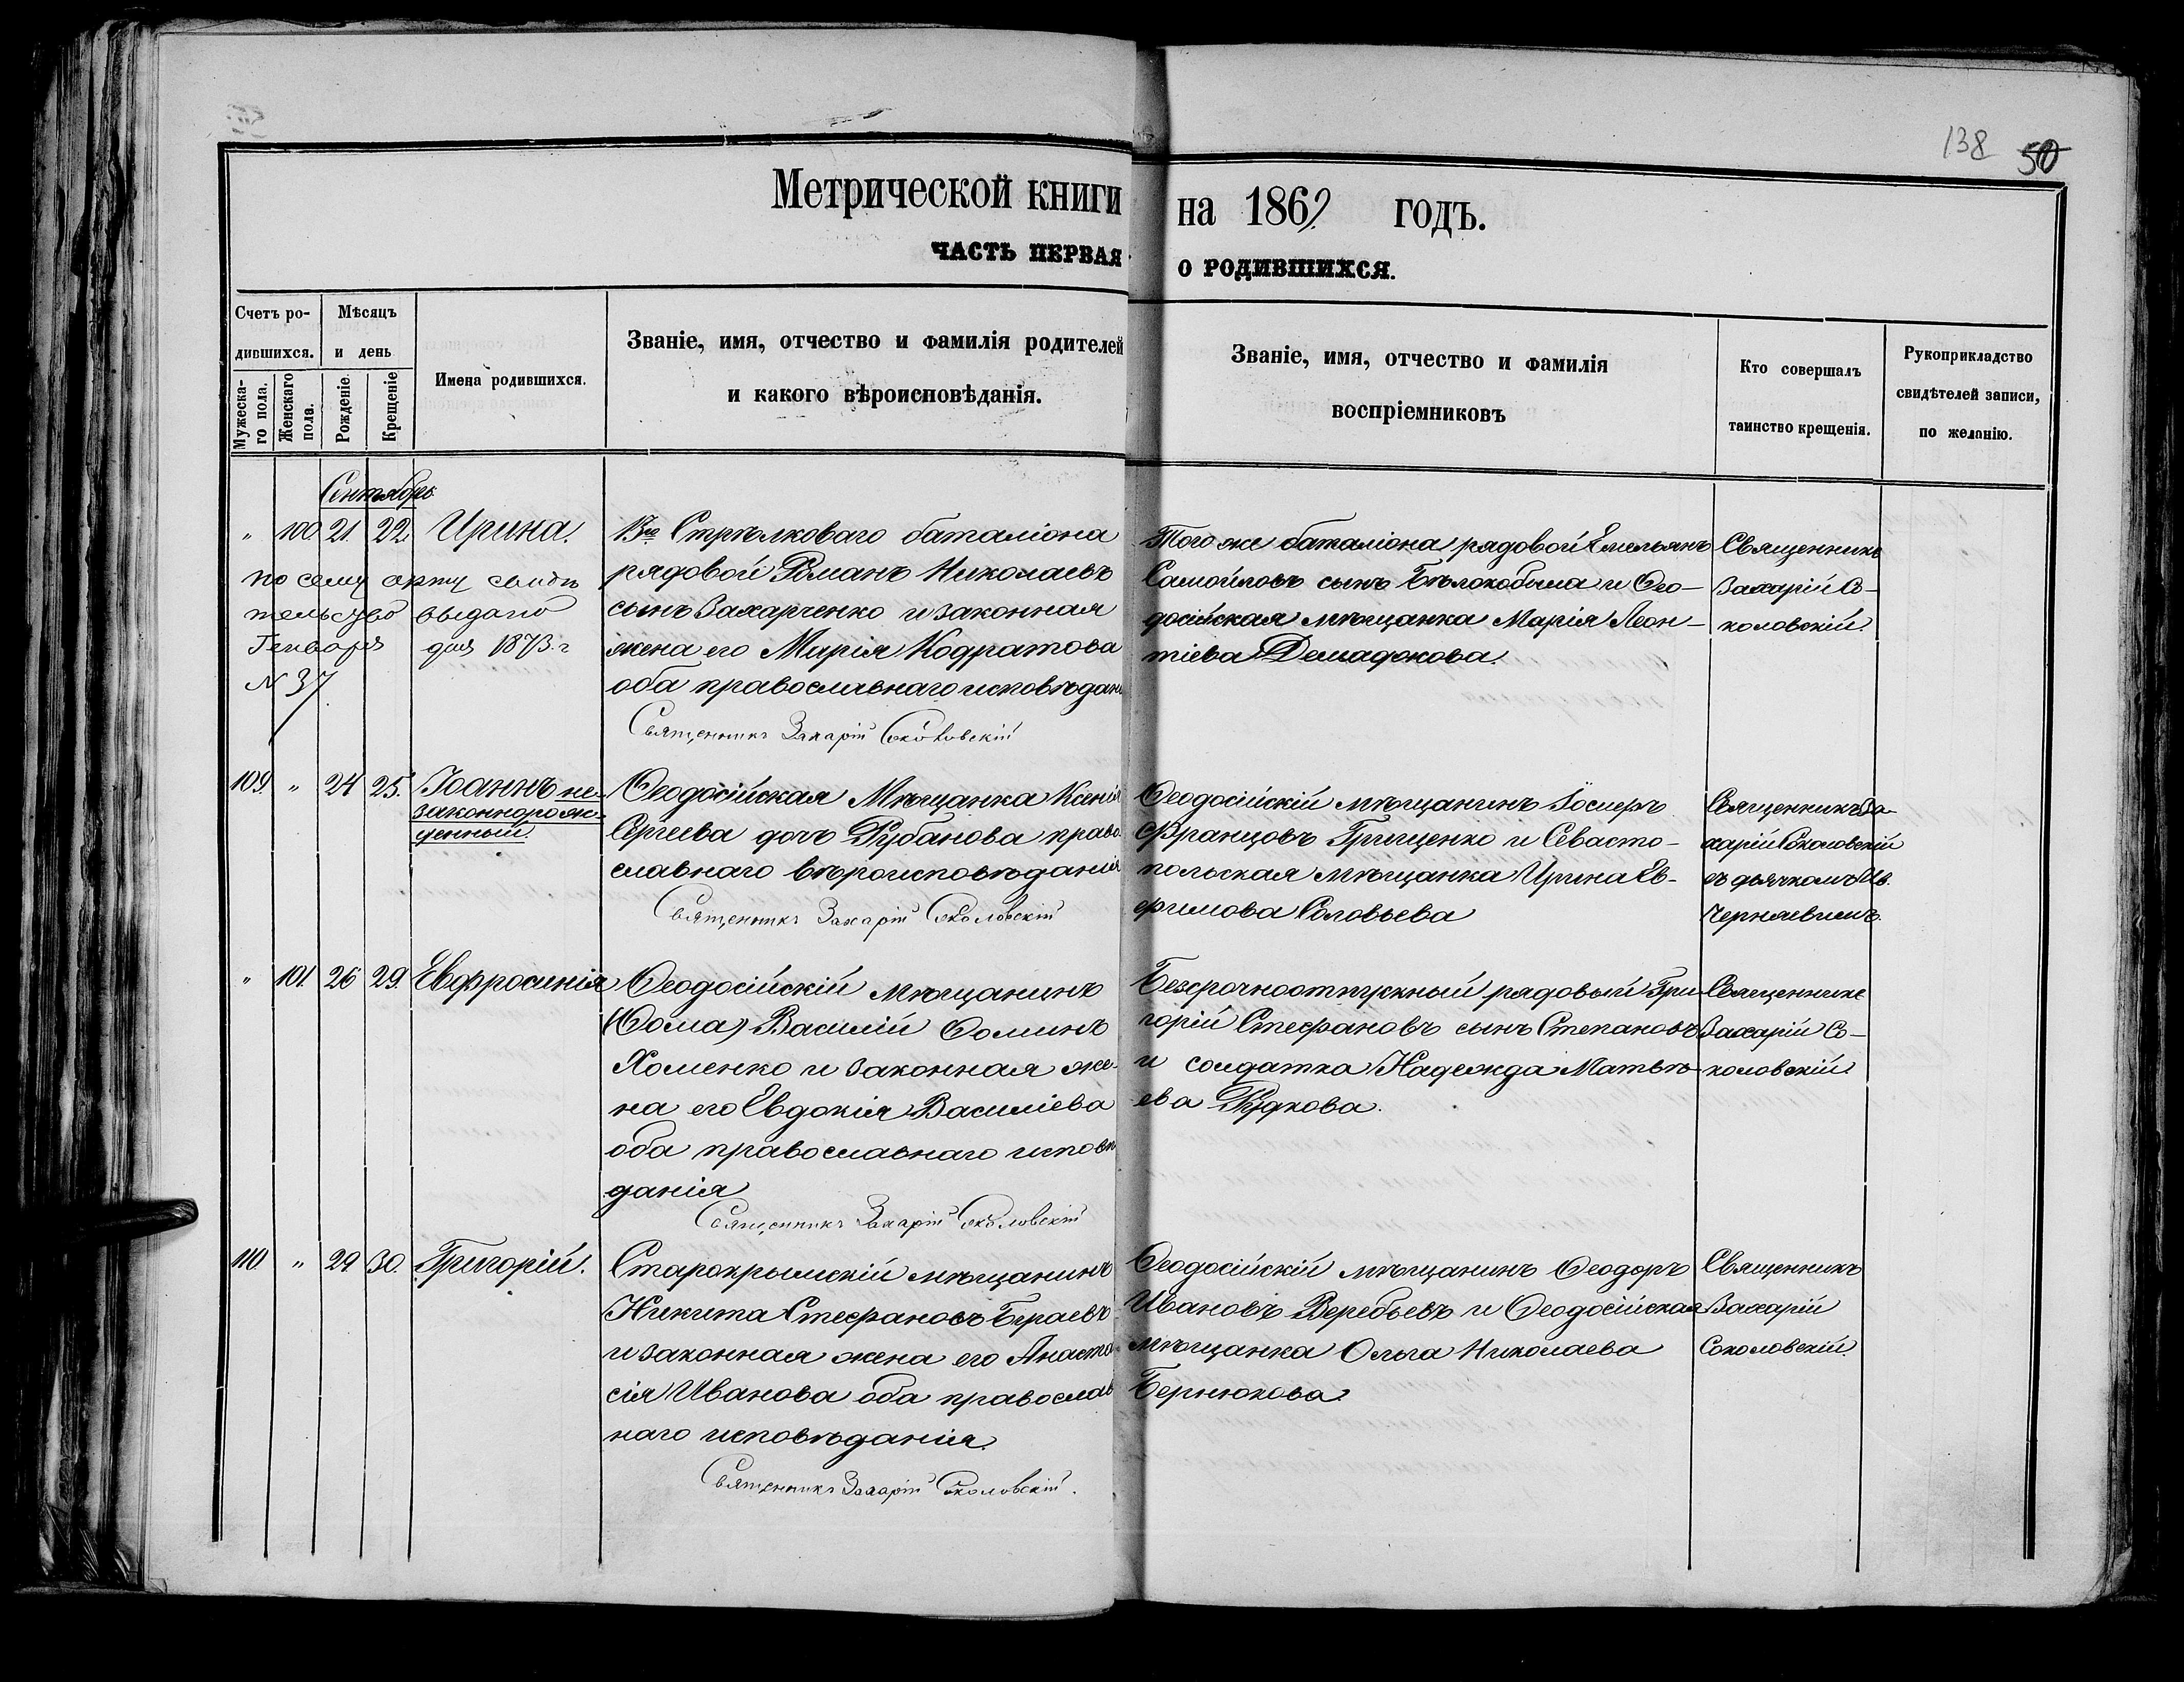 138 50
Метрической книги на 1869 годъ.
ЧАСТЬ ПЕРВАЯ О РОДИВШИХСЯ.
Счетъ ро-
дившихся.
Мужеска-
го пола.
Женскаго
пола.
Мѣсяцъ
и день
Рожденіе.
Крещеніе
Имена родившихся.
Званіе, имя, отчество и фамилія родителей
и какого вѣроисповѣданія.
Званіе, имя, отчество и фамилія
воспріемниковъ
Кто совершалъ
таинство крещенія.
Рукоприкладство
свидѣтелей записи,
по желанію.
Сентябрь
" 100 21. 22. Ирина.
по сему акту свидѣ
тельство выдано
Генваря дня 1873. г
№ 37.
Стрѣлковаго баталіона
рядовой Романъ Николаевъ
сынъ Захарченко и законная
жена его Марія Кодратова
оба православнаго исповѣдані
Священникъ Захарій Соколовскій
Того же баталіона рядовой Емельянъ
Самойловъ сынъ Бѣлокобыла и Ѳео-
досійская мѣщанка Марія Леон-
тіева Демадокова.
Священникъ
Захарій Со-
коловскій.
109. " 24 25. Іоаннъ не-
законнорож-
денный.
Ѳеодосійская Мѣщанка Ксенія
Сергѣева дочь Рубанова право-
славнаго вѣроисповѣданія
Священникъ Захарій Соколовскій
Ѳеодосійскій мѣщанинъ Іосифъ
Францовъ Грищенко и Севасто-
польская мѣщанка Ирина Ев-
фимова Соловьева
Священникъ За-
харій Соколовскій
съ дьячкомъ Ив.
Чернявимъ.
" 101. 26 29. Евфросинія
Ѳеодосійскій мѣщанинъ
(Ѳома) Василій Ѳоминъ
Хоменко и законная же-
на его Евдокія Василіева
оба православнаго исповѣ
данія
Священникъ Захарій Соколовскій
Безсрочноотпускный рядовый Гри-
горій Стефановъ сынъ Степановъ
и солдатка Надежда Матвѣ-
ева Рудкова.
Священникъ
Захарій Со-
коловскій.
110. " 29 30. Григорій.
Старокрымскій мѣщанинъ
Никита Стефановъ Бураевъ
и законная жена его Анаста-
сія Иванова оба православ
наго исповѣданія.
Священникъ Захарій Соколовскій.
Ѳеодосійскій мѣщанинъ Ѳеодоръ
Ивановъ Веребьевъ и Ѳеодосійская
мѣщанка Ольга Николаева
Бернюкова.
Священникъ
Захарій
Соколовскій.